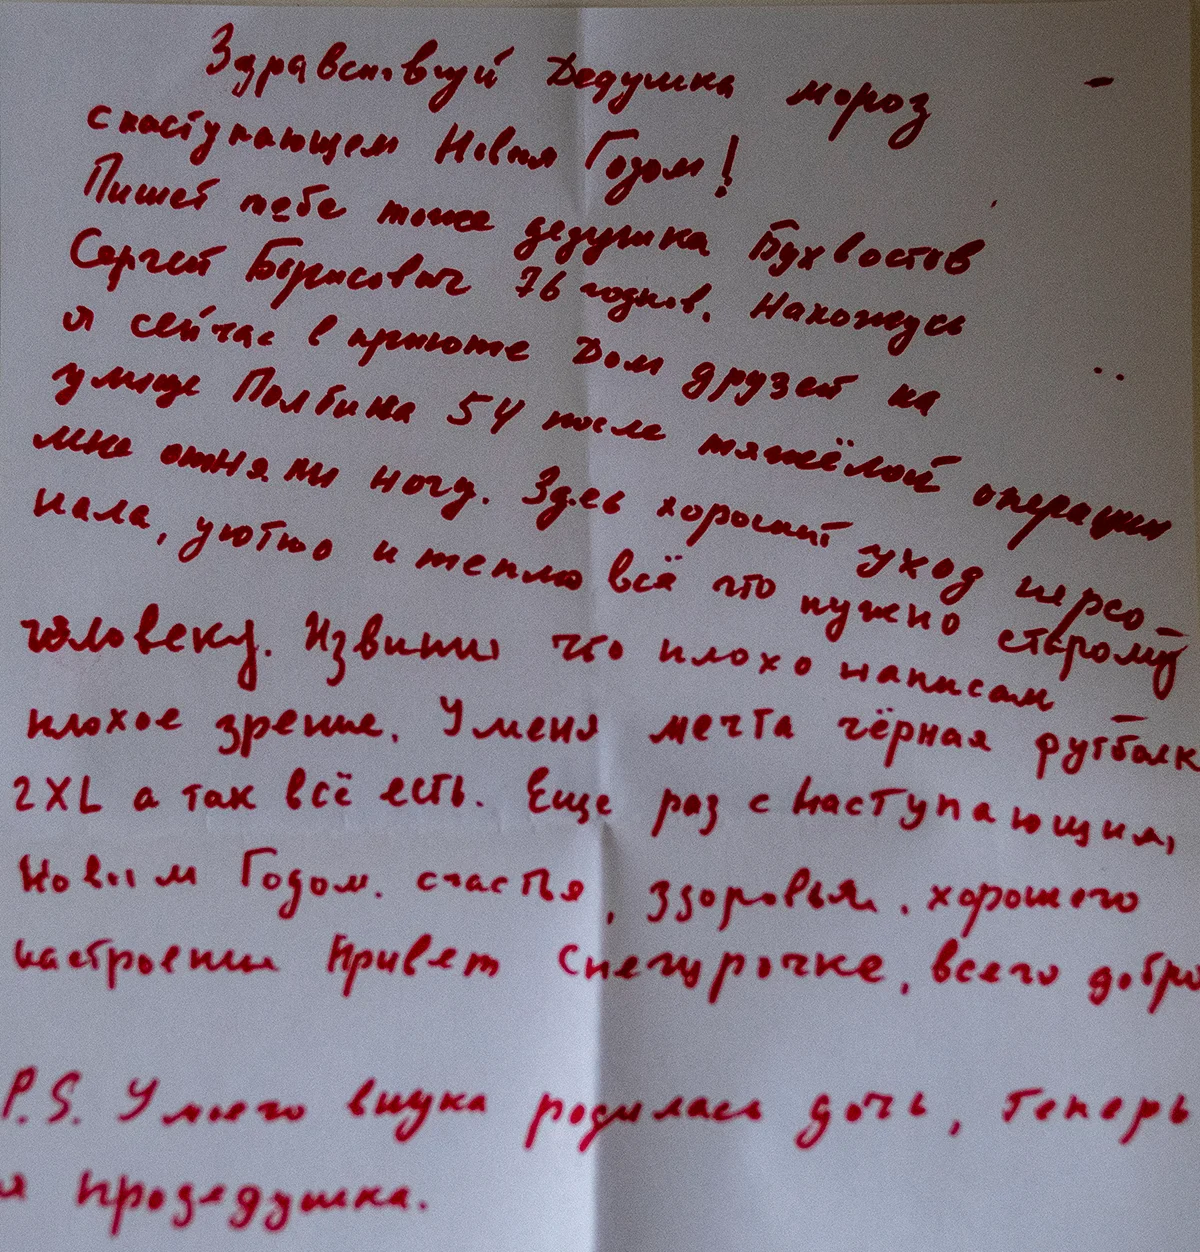 Здравствуй Дедушка мороз
с наступающем Новым Годом!
Пишет тебе тоже дедушка Бухвостов
Сергей Борисович 76 годиков. Нахожусь
я сейчас в приюте Дом друзей на
улице Полбина 54 после тяжёлой операции
мне отняли ногу. Здесь хороший уход персо
нала, уютно и тепло всё что нужно старому
человеку. Извини что плохо написал
плохое зрение. У меня мечта чёрная футболк
2XL а так всё есть. Еще раз с наступающим
Новым Годом. счастья, здоровья, хорошего
настроения Привет Снегурочке, всего добро
P.S. У моего внука родилась дочь, теперь
я продедушка.